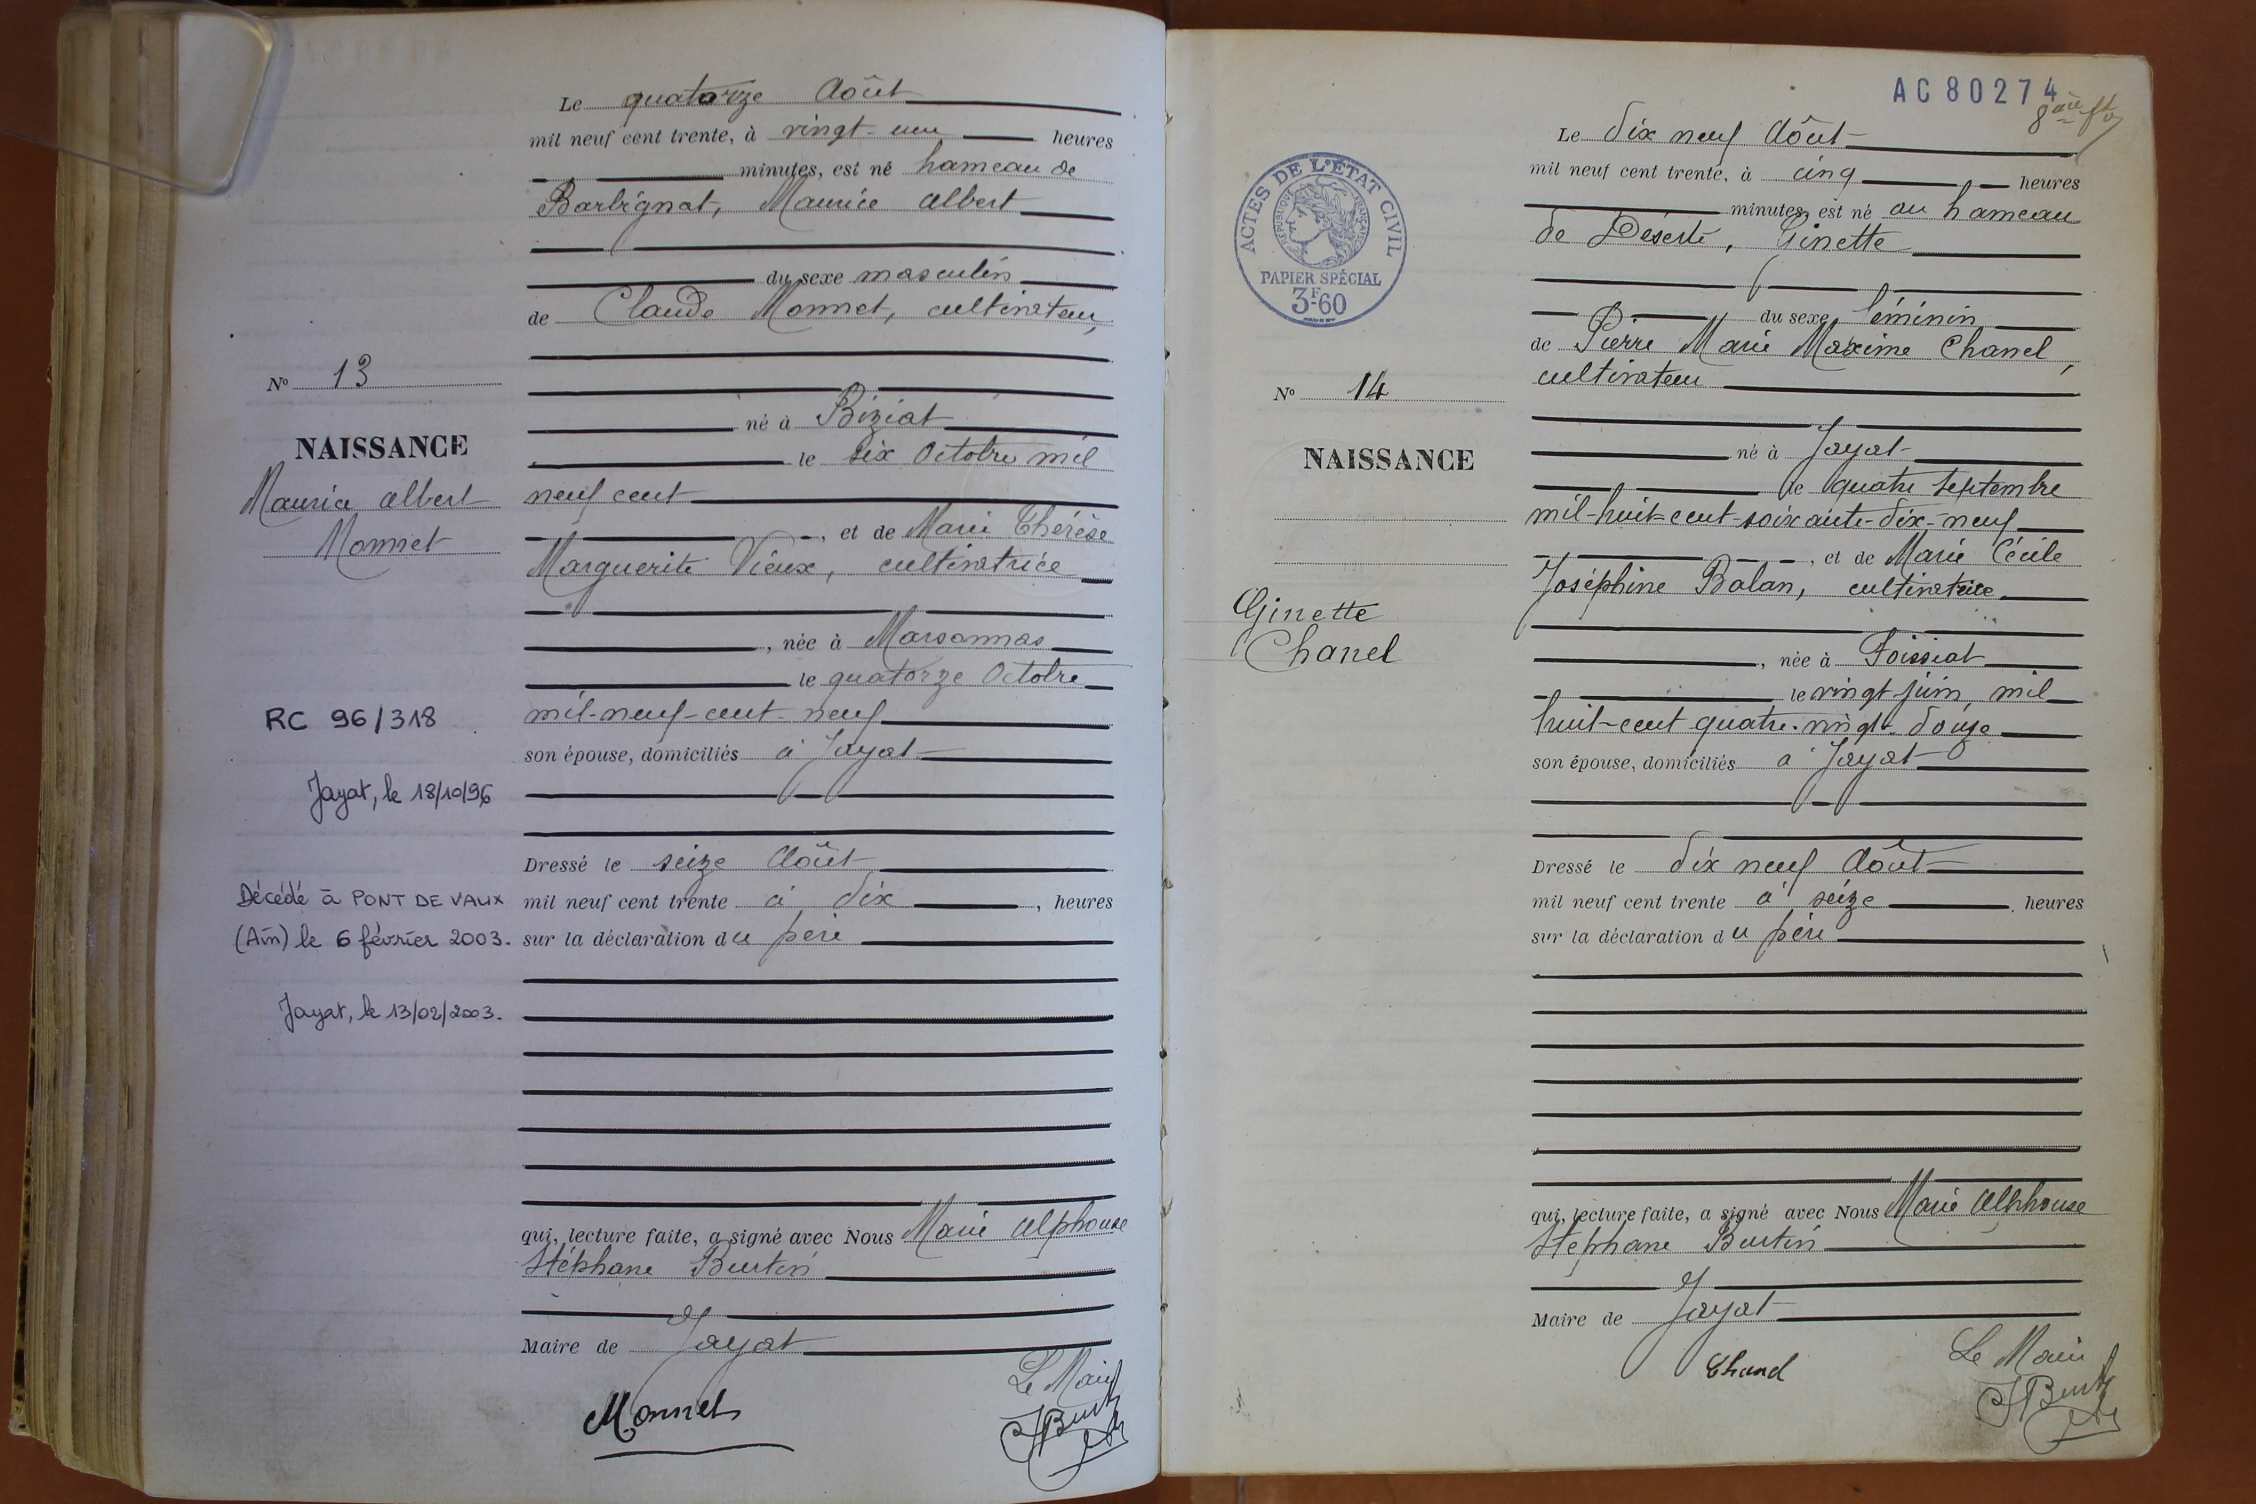 Le quatorze Août
mil neuf cent trente, à vingt-une heures
minutes, est né hameau de
Barbignat, Maurice Albert
du sexe masculin
de Claude Monnet, cultivateur,
né à Biziat
le six Octobre mil
neuf cent
, et de Marie Thérèse
Marguerite Vieux, cultivatrice
, née à Marsonnas
le quatorze Octobre
mil-neuf-cent-neuf
son épouse, domiciliés à Jayat
Dressé le seize Août
mil neuf cent trente à dix , heures
sur la déclaration du père
qui, lecture faite, a signé avec Nous Marie Alphonse
Stéphane Burtin
Maire de Jayat
Le Maire
Monnet
No 13
NAISSANCE
Maurice Albert
Monnet
RC 96/318
Jayat, le 18/10/96
Décédé à PONT DE VAUX
(Ain) le 6 février 2003.
Jayat, le 13/02/2003.
AC 80274
8ème
ACTES DE L'ÉTAT CIVIL
RÉPUBLIQUE FRANÇAISE
PAPIER SPÉCIAL
3F-60
Le dix neuf Août
mil neuf cent trente, à cinq heures
minutes, est né au hameau
de Déserte, Ginette
du sexe féminin
de Pierre Marie Maxime Chanel,
cultivateur
né à Jayat
le quatre Septembre
mil-huit-cent-soixante-dix-neuf
, et de Marie Cécile
Joséphine Balan, cultivatrice
, née à Foissiat
le vingt juin, mil
huit-cent quatre-vingt-douze
son épouse, domiciliés à Jayat
Dressé le dix neuf Août
mil neuf cent trente à seize heures
sur la déclaration du père
qui, lecture faite, a signé avec Nous Marie Alphonse
Stéphane Burtin
Maire de Jayat
Le Maire
Chanel
No 14
NAISSANCE
Ginette
Chanel